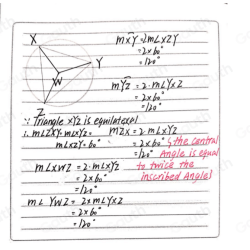 X
Y
W
Z
mXY = 2mLXZY
= 2x60°
= 120°
mYZ = 2·mLYXZ
= 2x60°
= 120°
∵ Triangle XYZ is equilateral
∴ mLZXY = mLXYZ =
mLXZY = 60°
mZX = 2·mLXYZ
= 2x60°
= 120°
(the central Angle is equal to twice the inscribed Angle)
mLXWZ = 2·mLXYZ
= 2x60°
= 120°
mL YWZ = 2xmLYXZ
= 2x60°
= 120°